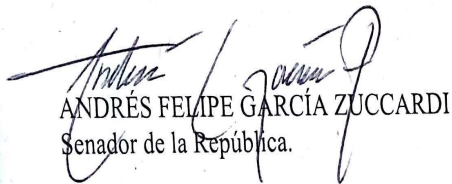 ANDRÉS FELIPE GARCÍA ZUCCARDI
Senador de la República.